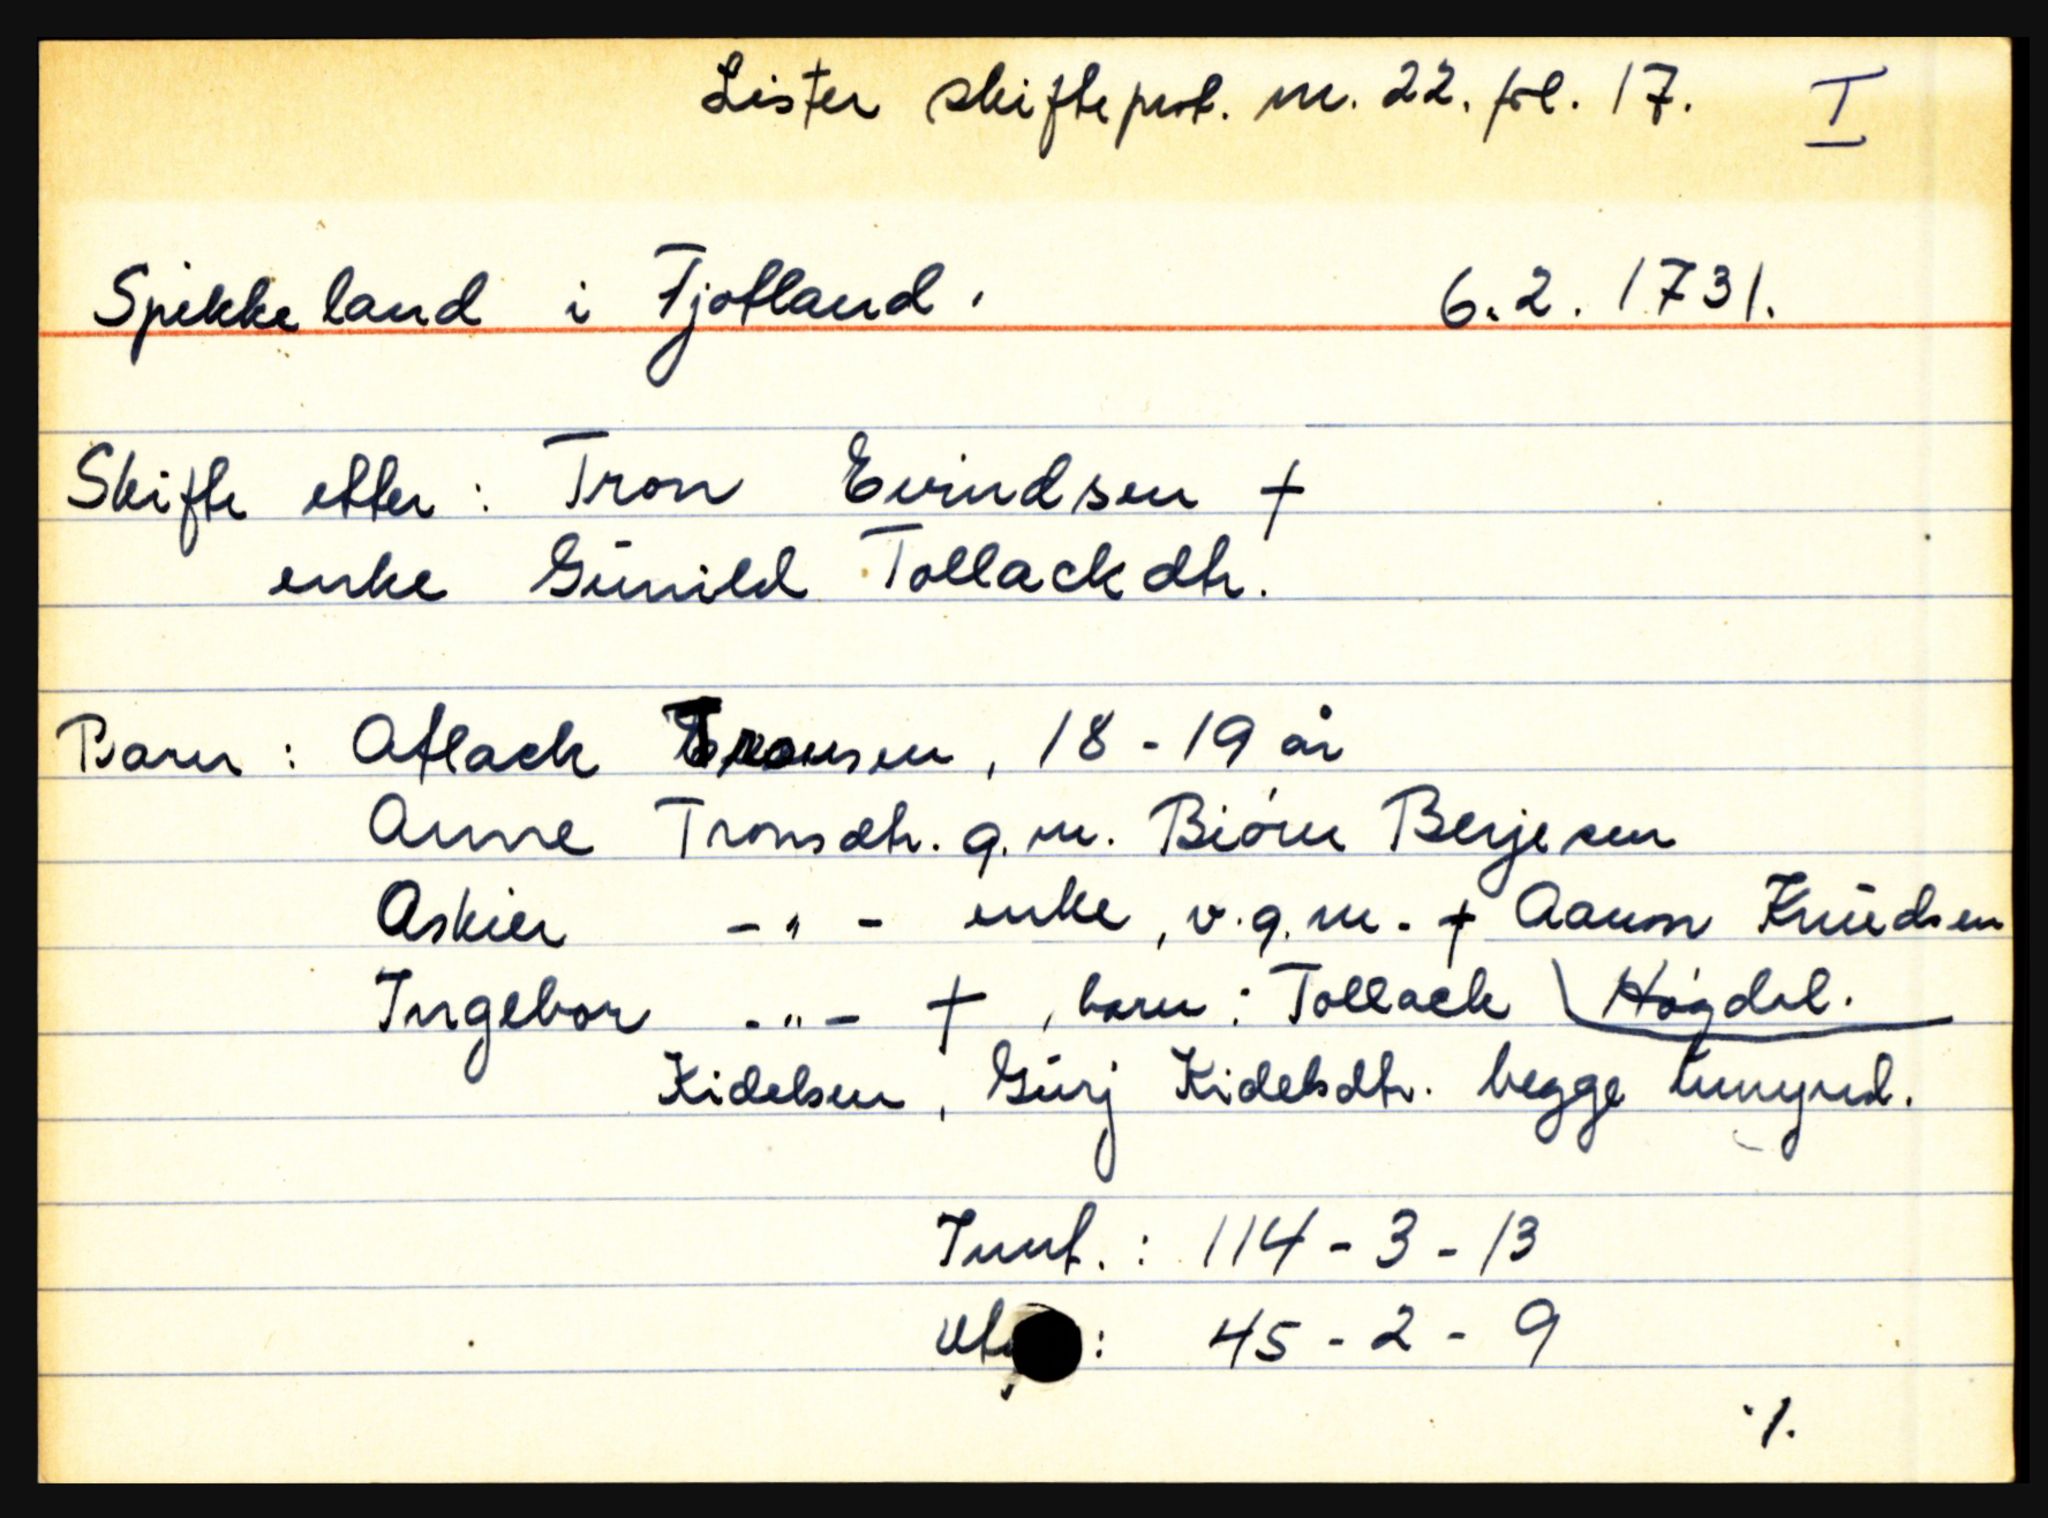 Lister skifteprot. nr. 22. fol. 17. I
Spikkeland i Fjotland. 6.2.1731.
Skifte etter: Tron Evindsen †
enke Gŭnild Tollackdtr.
Barn: Atlack Tronsen, 18-19 år
Anne Tronsdtr. g.m. Biórn Berjesen
Askier -"- enke, v.g.m. † Aanon Knŭdsen
Ingebor -"- †, barn: Tollack Høgdal.
Kidelsen, Gŭrj Kidelsdtr. begge umynd.
Innt.: 114-3-13
45-2-9
./.